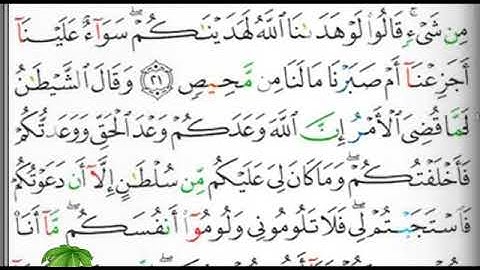 مِن شَىْءٍ ۚ قَالُوا۟ لَوْ هَدَىٰنَا ٱللَّهُ لَهَدَيْنَٰكُمْ ۖ سَوَآءٌ عَلَيْنَآ
أَجَزِعْنَآ أَمْ صَبَرْنَا مَا لَنَا مِن مَّحِيصٍ ﴿٢١﴾ وَقَالَ ٱلشَّيْطَٰنُ
لَمَّا قُضِىَ ٱلْأَمْرُ إِنَّ ٱللَّهَ وَعَدَكُمْ وَعْدَ ٱلْحَقِّ وَوَعَدتُّكُمْ
فَأَخْلَفْتُكُمْ ۖ وَمَا كَانَ لِىَ عَلَيْكُم مِّن سُلْطَٰنٍ إِلَّآ أَن دَعَوْتُكُمْ
فَٱسْتَجَبْتُمْ لِى ۖ فَلَا تَلُومُونِى وَلُومُوٓا۟ أَنفُسَكُم ۖ مَّآ أَنَا۠